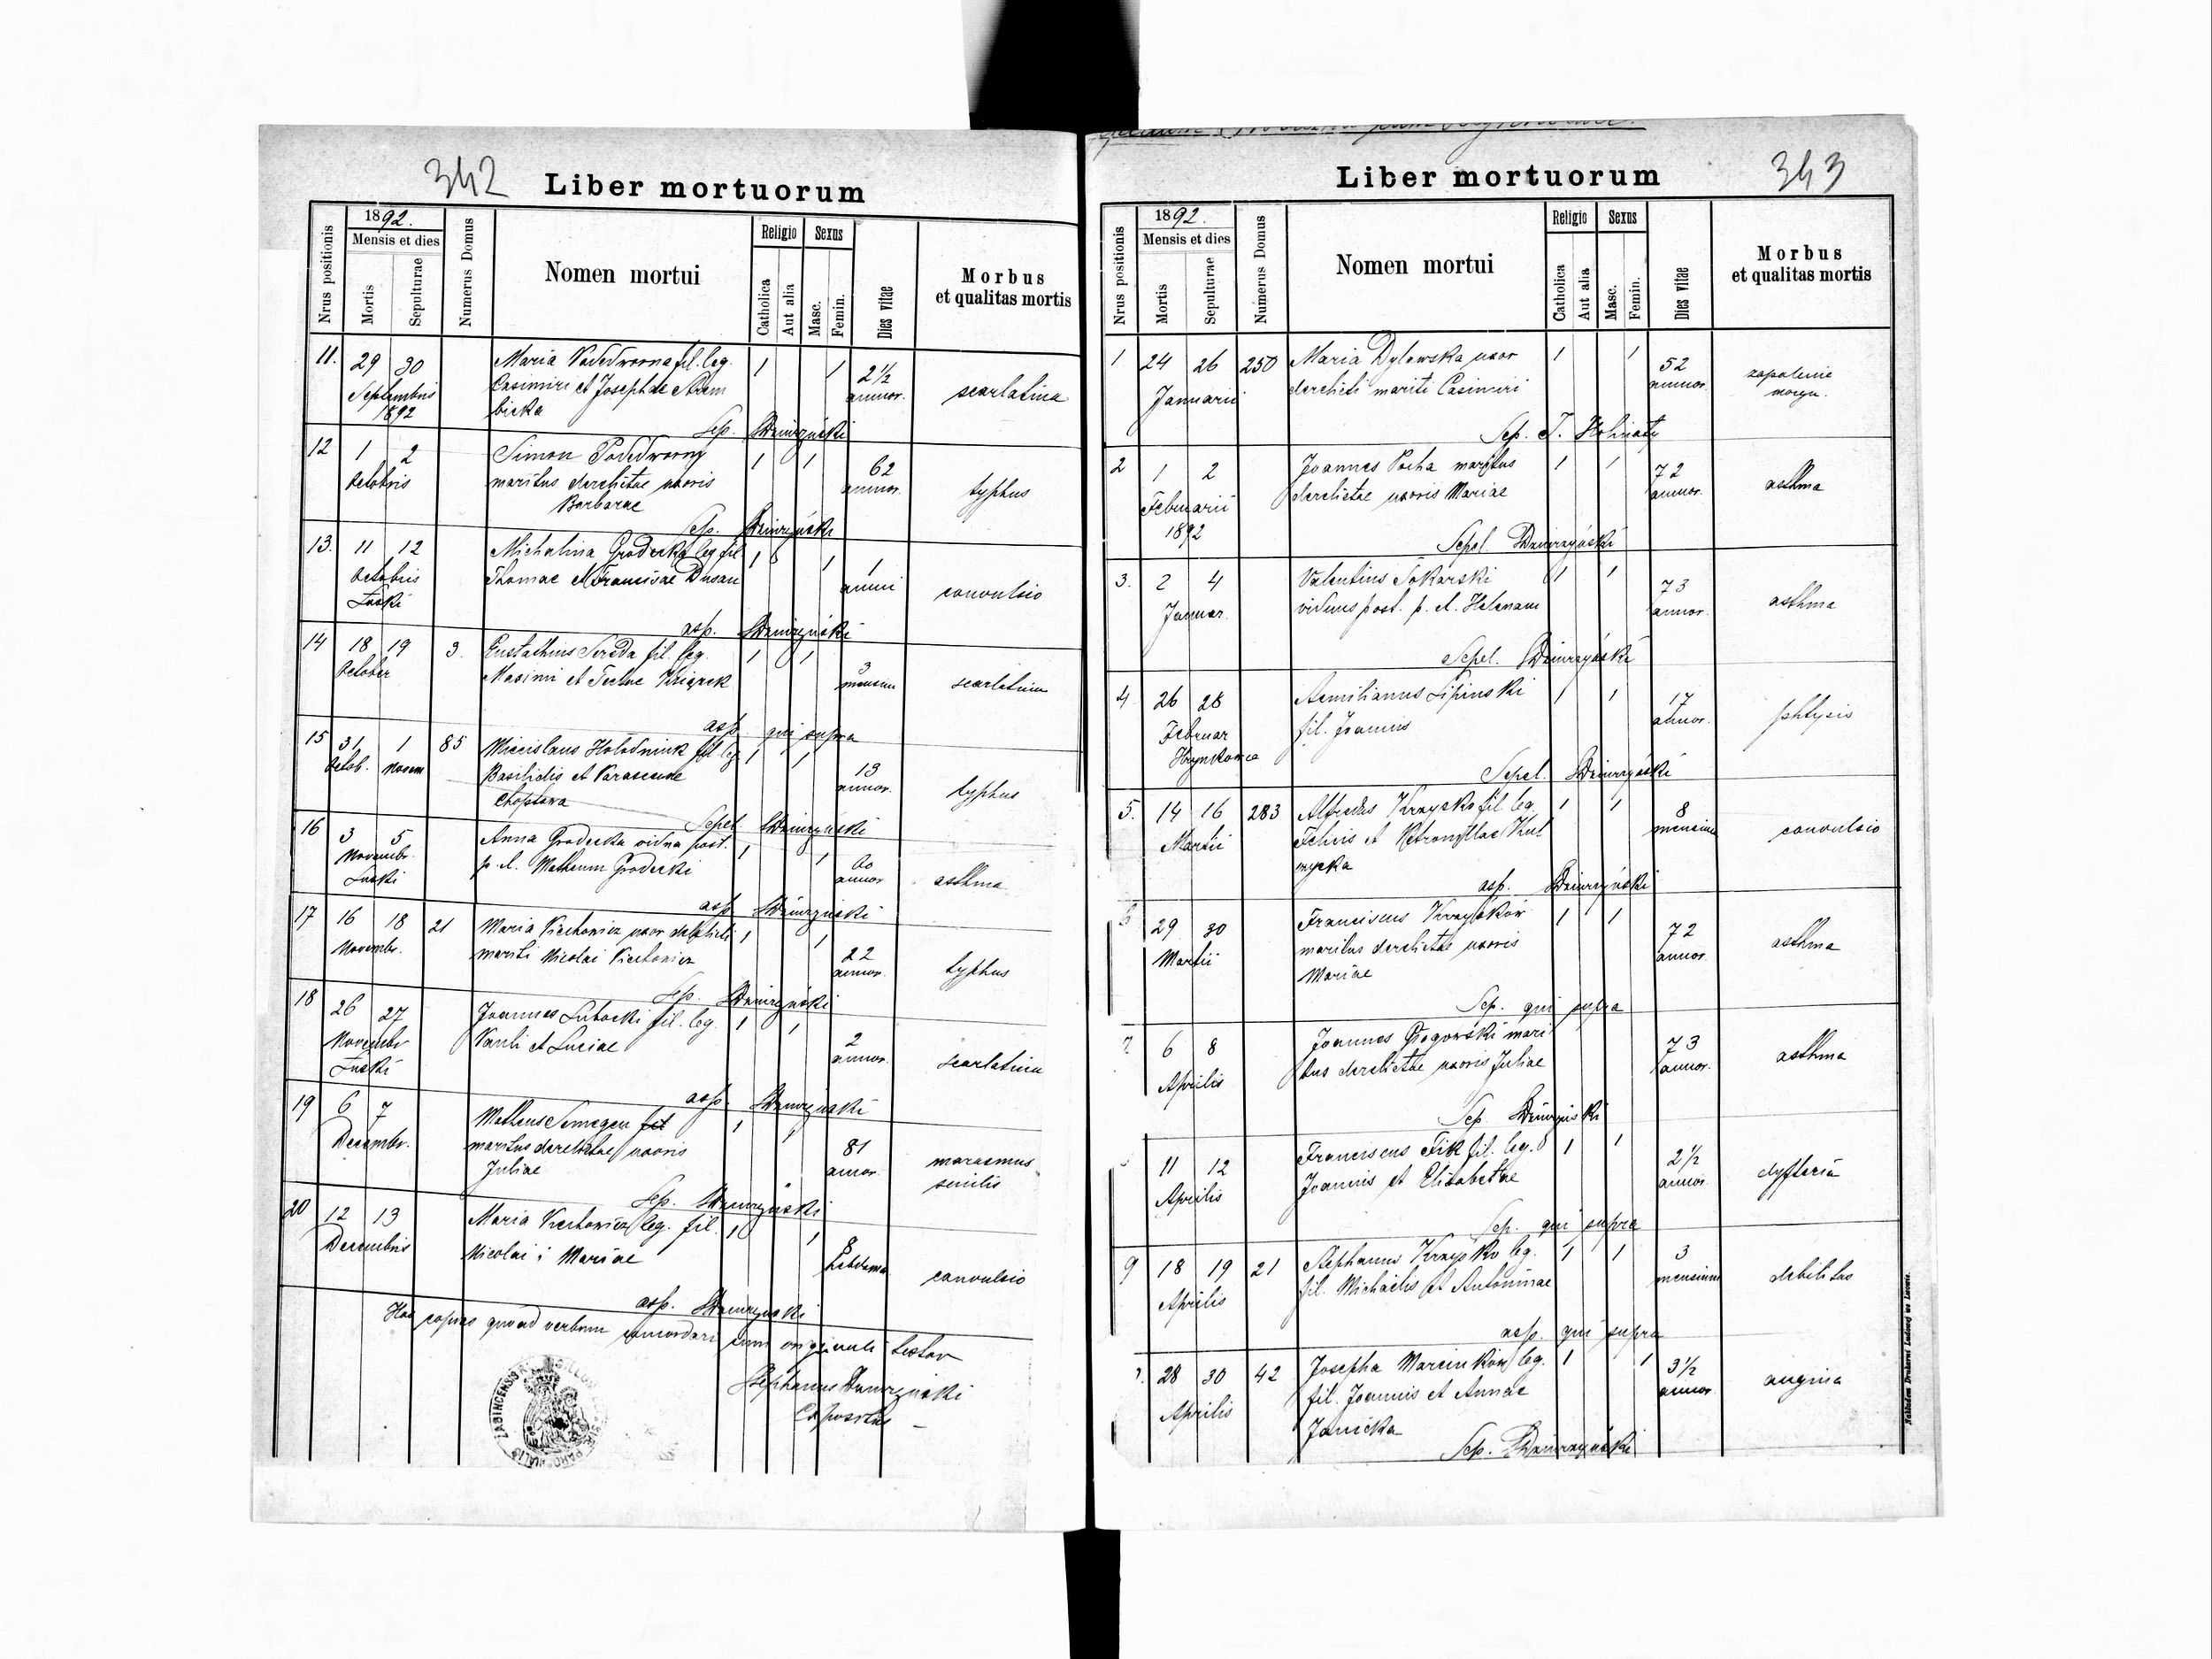 342
Liber mortuorum
Nrus positionis
1892.
Mensis et dies
Mortis
Sepulturae
Numerus Domus
Nomen mortui
Religio
Catholica
Aut alia
Sexus
Masc.
Femin.
Dies vitae
Morbus
et qualitas mortis
11. 29 30 Maria fil. leg. 1 1 2½
Septembris Casimiri et Josephae annor. scarlatina
1892 bicka
Sep. Dziurzyński
12 1 2 Simon Podedworny 1 1 62
Octobris maritus derelictae uxoris annor. typhus
Barbarae
Sep. Dziurzyński
13. 11 12 Michalina Grodecka leg. fil. 1 1 1
Octobris Thomae et Franciscae Dusan anni convulsio
Łuski
asp. Dziurzyński
14 18 19 3. Eustachius Sereda fil. leg. 1 1 3
October Maximi et Teclae mensium scarlatina
asp. qui supra
15 31 1 85 Miecislaus Holodniuk fil. leg. 1 1 13
Octob. Novem Basilidis et Parascevae annor. typhus
Choptowa
Sepel. Dziurzyński
16 3 5 Anna Grodecka vidua post. 1 1 60
Novembr. p. d. Matheum Grodecki annor. asthma
Łuski
asp. Dziurzyński
17 16 18 21 Maria Kiertowicz uxor derelicti 1 1 22
Novembr. mariti Nicolai Kiertowicz annor. typhus
Sep. Dziurzyński
18 26 27 Joannes Lubacki fil. leg. 1 1 2
Novembr Pauli et Luciae annor. scarlatina
Łuski
asp. Dziurzyński
19 6 7 Matheus Semegen fil 1 1 81
Decembr. maritus derelictae uxoris annor. marasmus
Juliae senilis
Sep. Dziurzyński
20 12 13 Maria Kiertowicz leg. fil. 1 1 8
Decembris Nicolai i Mariae hebdomad convulsio
asp. Dziurzyński
Has copias quoad verbum concordari cum originali testor
Stephanus Dziurzyński
Expositus
343
Liber mortuorum
Nrus positionis
1892.
Mensis et dies
Mortis
Sepulturae
Numerus Domus
Nomen mortui
Religio
Catholica
Aut alia
Sexus
Masc.
Femin.
Dies vitae
Morbus
et qualitas mortis
1 24 26 250 Maria Dylewska uxor 1 1 52 zapalenie
Januarii derelicti mariti Casimiri annor.
Sep. T.
2 1 2 Joannes Pocha maritus 1 1 72
Februarii derelictae uxoris Mariae annor. asthma
1892
Sepel. Dziurzyński
3. 2 4 Valentinus Tokarski 1 1 73
Januar. viduus post. p. d. Helenam annor. asthma
Sepel. Dziurzyński
4 26 28 Aemilianus Lipinski 1 1 17
Februar fil. Joannis annor. phtysis
Hrynkowce
Sepel. Dziurzyński
5. 14 16 283 Alfredus Krzysko fil. leg. 1 1 8
Martii Felicis et Petronyllae Kul mensium convulsio
czycka
asp. Dziurzyński
6 29 30 Franciscus Krzyśków 1 1 72
Martii maritus derelictae uxoris annor. asthma
Mariae
Sep. qui supra
7. 6 8 Joannes Głogowski mari 73
Aprilis tus derelictae uxoris Juliae annor. asthma
Sep. Dziurzyński
11 12 Franciscus Fik fil. leg. 1 1 2½
Aprilis Joannis et Elisabethae annor dyfteria
Sep. qui supra
9 18 19 21 Stephanus Krzysko leg. 1 1 3
Aprilis fil. Michaelis et Antoninae mensium debilitas
asp. qui supra
28 30 42 Josepha Marcinków leg. 1 1 3½
Aprilis fil. Joannis et Annae annor. angina
Janicka
Sep. Dziurzyński
Nakładem Drukarni Ludowej we Lwowie.